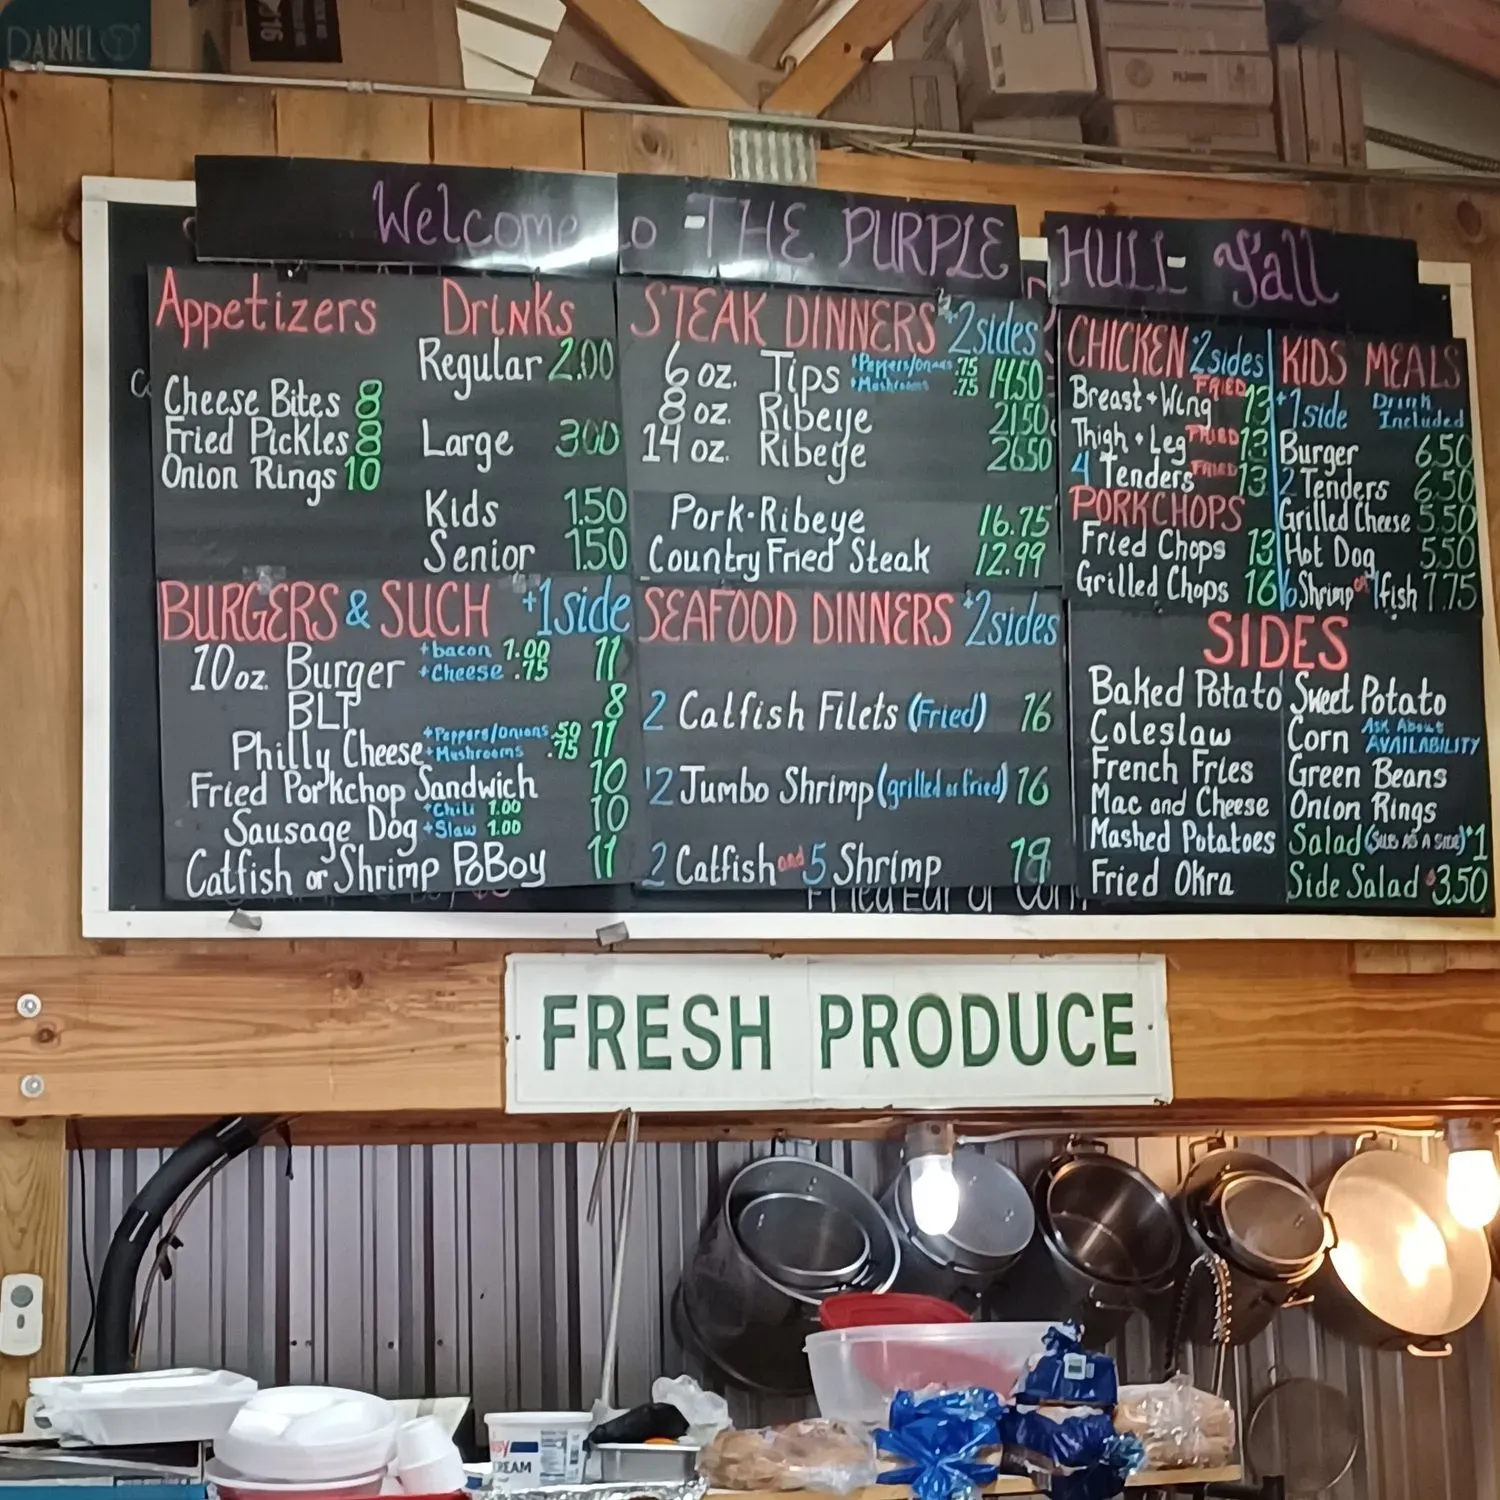 DARNEL
Welcome to -THE PURPLE HULL- Y'all
Appetizers
Cheese Bites 8
Fried Pickles 8
Onion Rings 10
Drinks
Regular 2.00
Large 300
Kids 1.50
Senior 1.50
BURGERS & SUCH +1side
10oz. Burger +bacon 1.00 +Cheese .75 11
BLT 8
Philly Cheese +Peppers/Onions .50 +Mushrooms .75 11
Fried Porkchop Sandwich 10
Sausage Dog +Chili 1.00 +Slaw 1.00 10
Catfish or Shrimp PoBoy 11
STEAK DINNERS +2sides
6 oz. Tips +Peppers/Onions .75 +Mushrooms .75 14.50
8 oz. Ribeye 21.50
14 oz. Ribeye 26.50
Pork-Ribeye 16.75
Country Fried Steak 12.99
SEAFOOD DINNERS +2sides
2 Catfish Filets (Fried) 16
12 Jumbo Shrimp (grilled or fried) 16
2 Catfish and 5 Shrimp 18
CHICKEN 2sides
Breast + Wing FRIED 13
Thigh + Leg FRIED 13
4 Tenders FRIED 13
PORKCHOPS
Fried Chops 13
Grilled Chops 16
KIDS MEALS
+1side Drink Included
Burger 6.50
2 Tenders 6.50
Grilled Cheese 5.50
Hot Dog 5.50
6 Shrimp or 1fish 7.75
SIDES
Baked Potato
Coleslaw
French Fries
Mac and Cheese
Mashed Potatoes
Fried Okra
Sweet Potato
Corn Ask About AVAILABILITY
Green Beans
Onion Rings
Salad (SUB AS A SIDE) +1
Side Salad $3.50
FRESH PRODUCE
CREAM